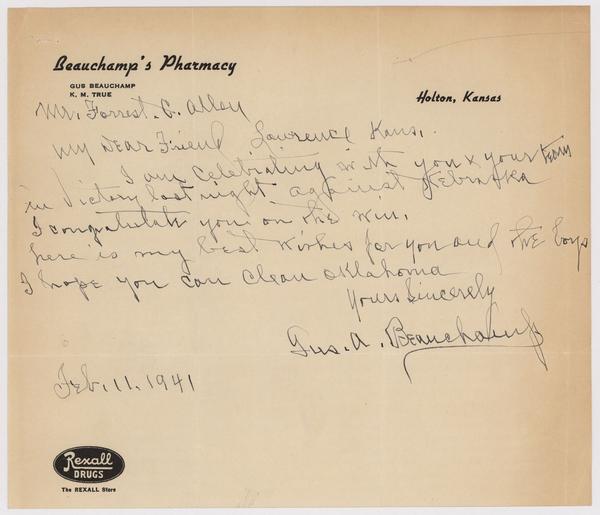 Beauchamp's Pharmacy
GUS BEAUCHAMP
K. M. TRUE
Holton, Kansas
Mr. Forrest. C. Alley
My Dear Friend Lawrence Kans..
I am Celebrating with you & your team
in Victory last night against Nebraska
I congratulate you on the win.
here is my best wishes for you and the boys
I hope you can clean oklahoma
Yours Sincerely
Gus. A. Beauchamp
Feb. 11. 1941
Rexall
DRUGS
The REXALL Store